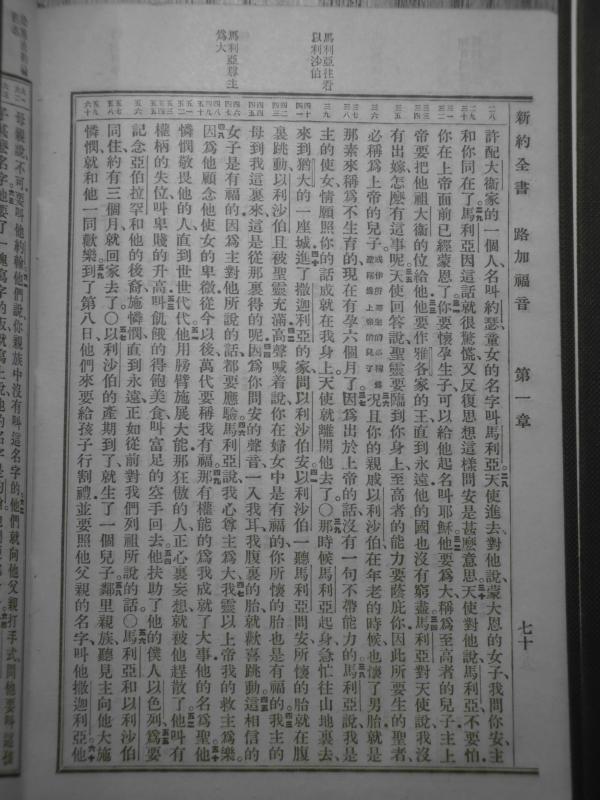 新約全書 路加福音 第一章 七十
馬利亞往看以利沙伯
馬利亞尊主為大
許配大衛家的一個人、名叫約瑟、童女的名字叫馬利亞、天使進去、對他說、蒙大恩的女子、我問你安、主
和你同在了、馬利亞因這話就很驚慌、又反復思想這樣問安是甚麽意思、天使對他說、馬利亞、不要怕、
你在上帝面前已經蒙恩了、你要懷孕生子、可以給他起名叫耶穌、他要為大、稱為至高者的兒子、主上
帝要把他祖大衛的位給他、他要作雅各家的王、直到永遠、他的國也沒有窮盡、馬利亞對天使說、我沒
有出嫁、怎麽有這事呢、天使回答說、聖靈要臨到你身上、至高者的能力要蔭庇你、因此所要生的聖者、
必稱為上帝的兒子、況且你的親戚以利沙伯、在年老的時候、也懷了男胎、就是
那素來稱為不生育的、現在有孕六個月了、因為出於上帝的話、沒有一句不帶能力的、馬利亞說、我是
主的使女、情願照你的話成就在我身上、天使就離開他去了〇那時候馬利亞起身、急忙往山地裏去、
來到猶大的一座城、進了撒迦利亞的家、問以利沙伯安、以利沙伯一聽馬利亞問安、所懷的胎就在腹
裏跳動、以利沙伯且被聖靈充滿、高聲喊着說、你在婦女中是有福的、你所懷的胎也是有福的、我主的
母到我這裏來、這是從那裏得的呢、因為你問安的聲音、一入我耳、我腹裏的胎、就歡喜跳動、這相信的
女子是有福的、因為主對他所說的話、都要應驗、馬利亞說、我心尊主為大、我靈以上帝我的救主為樂、
因為他顧念他使女的卑微、從今以後、萬代要稱我有福、那有權能的、為我成就了大事、他的名為聖、他
憐憫敬畏他的人、直到世世代代、他用膀臂施展大能、那狂傲的人、正心裏妄想、就被他趕散了、他叫有
權柄的失位、叫卑賤的升高、叫飢餓的得飽美食、叫富足的空手回去、他扶助了他的僕人以色列、為要
記念亞伯拉罕和他的後裔、施憐憫、直到永遠、正如從前對我們列祖所說的話〇馬利亞和以利沙伯
同住約有三個月、就回家去了〇以利沙伯的產期到了、就生了一個兒子、鄰里親族、聽見主向他大施
憐憫、就和他一同歡樂、到了第八日、他們來要給孩子行割禮、並要照他父親的名字、叫他撒迦利亞、他
母親說、不可、要叫他約翰、他們說、你親族中沒有叫這名字的、他們就向他父親打手式、問他要叫這孩